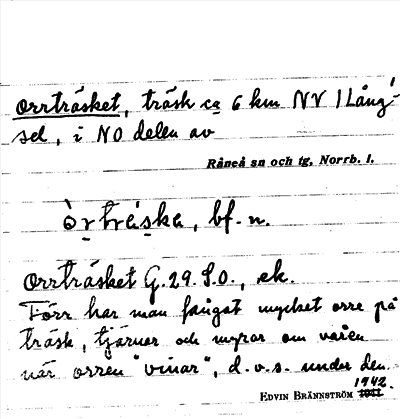 Orrträsket, träsk ca 6 km NV I Lång-
sel, i NO delen av
Råneå sn och tg, Norrb. l.
òrträ́ska, bf. n.
Orrträsket G. 29. S.O., ek.
Förr har man fångat mycket orre på
träsk, tjärnar och myrar om våren
när orren "vinar", d.v.s. under den
1942.
EDVIN BRÄNNSTRÖM 1941